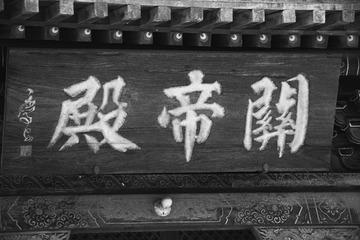 關帝殿